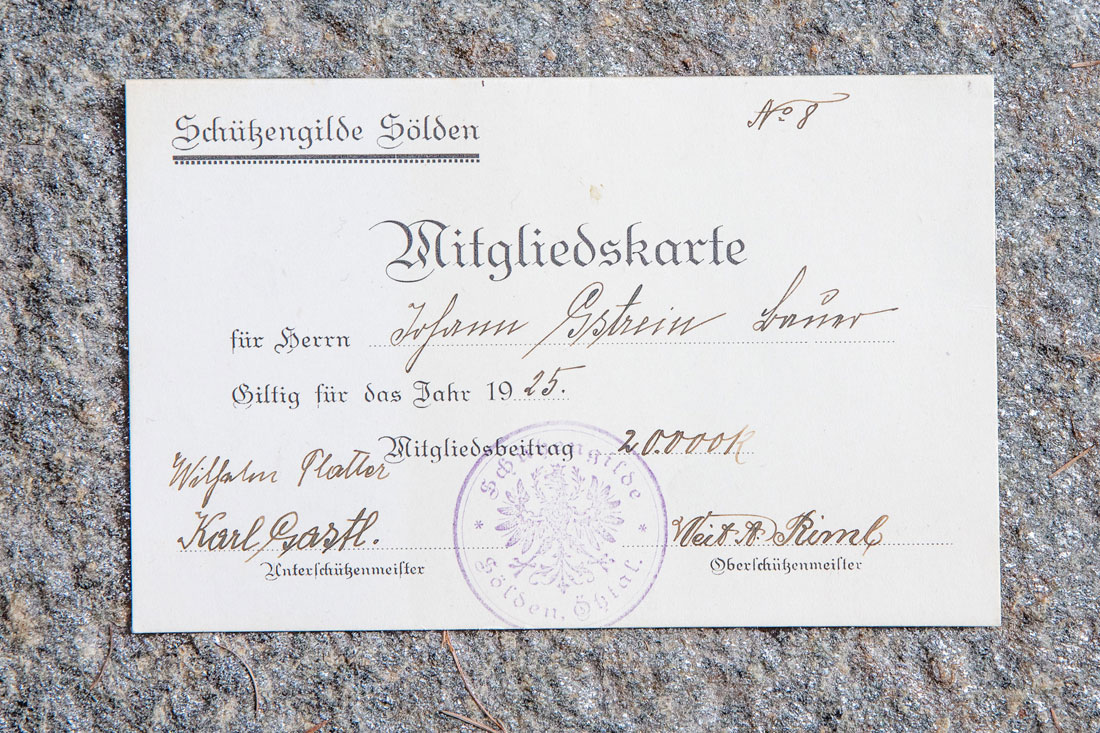 Schützengilde Sölden
No 8
Mitgliedskarte
für Herrn Johann Gstrein Bauer
Giltig für das Jahr 1925.
Mitgliedsbeitrag 20.000K
Wilhelm Platter
Karl Gastl.
Veit A Riml
Unterschützenmeister
Oberschützenmeister
* Schützengilde *
Sölden, Ötztal.